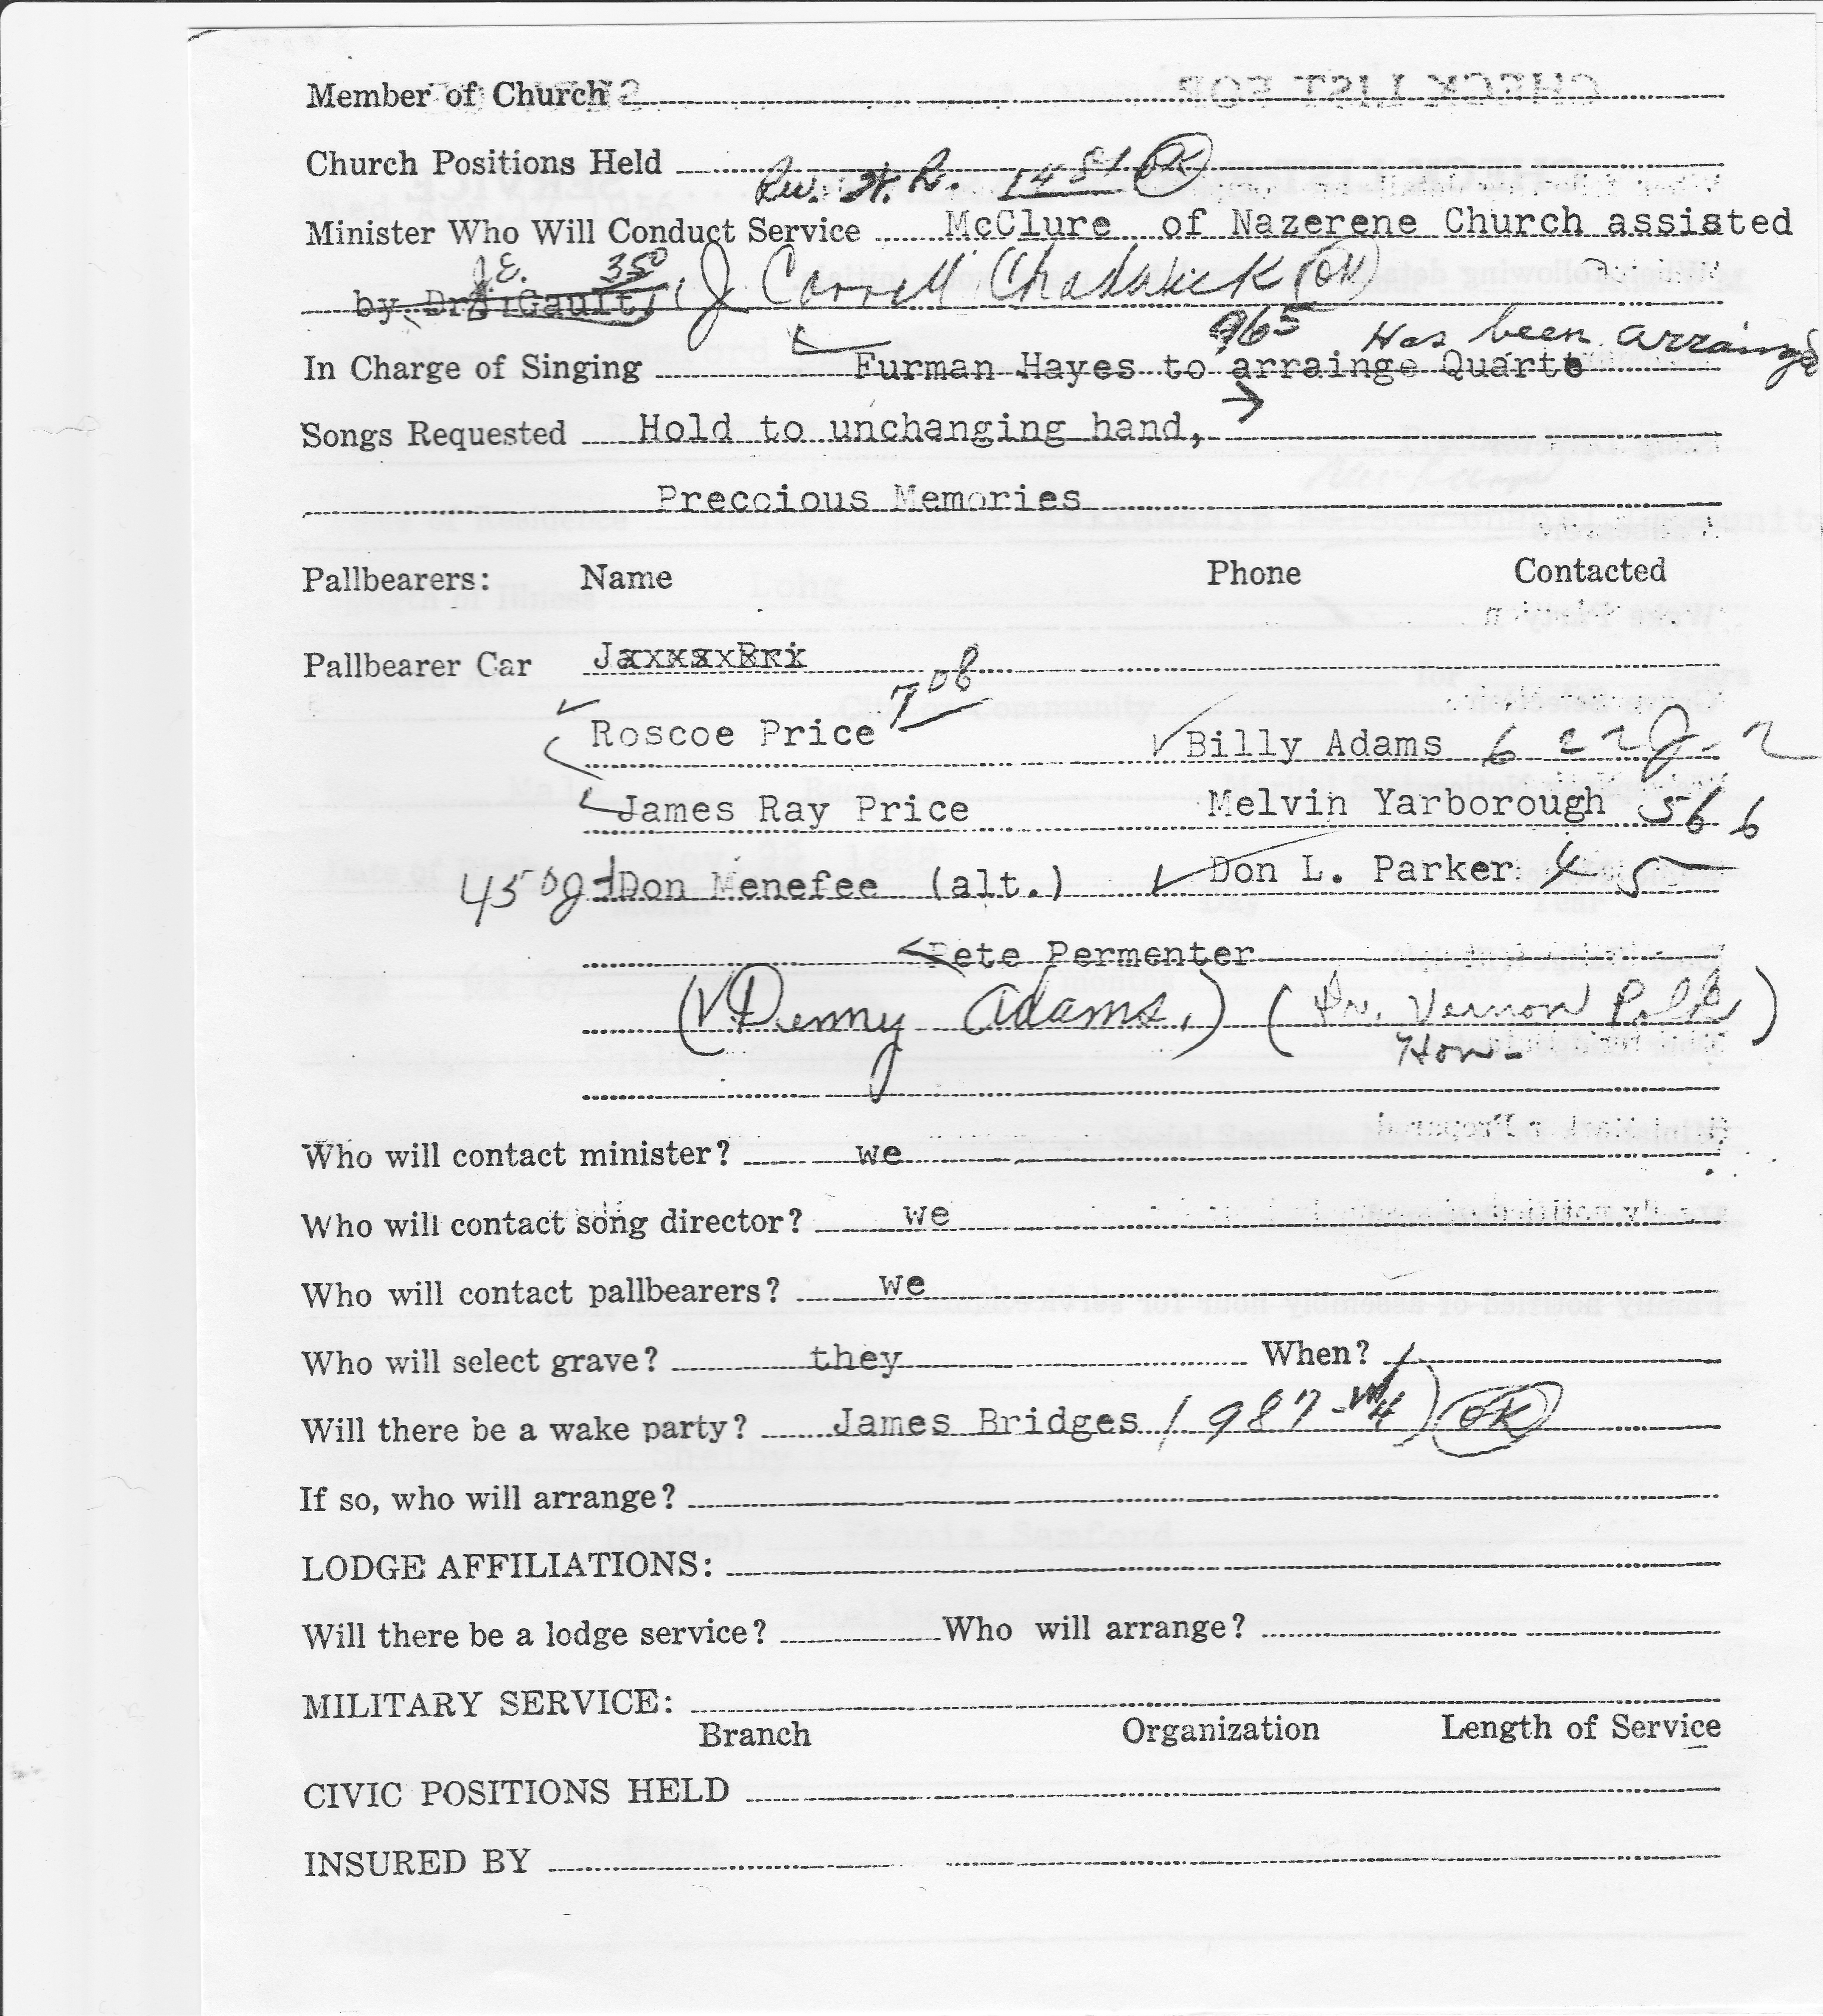 Member of Church
Church Positions Held
Rev. H. R. 1481 OK
Minister Who Will Conduct Service McClure of Nazerene Church assisted
J.E. 350
by Dr. Gault, J Carroll Chadwick (OK)
965 Has been arrainged
In Charge of Singing Furman Hayes to arrainge Quarte
Songs Requested Hold to unchanging hand,
Preccious Memories
Pallbearers: Name Phone Contacted
Pallbearer Car
Roscoe Price 708 Billy Adams 622J-2
James Ray Price Melvin Yarborough 566
450J Don Menefee (alt.) Don L. Parker 45
Pete Permenter
(Denny Adams,) (Dr. Vernon Polk)
Hon-
Who will contact minister? we
Who will contact song director? we
Who will contact pallbearers? we
Who will select grave? they When?
Will there be a wake party? James Bridges (987-W4) OK
If so, who will arrange?
LODGE AFFILIATIONS:
Will there be a lodge service? Who will arrange?
MILITARY SERVICE:
Branch Organization Length of Service
CIVIC POSITIONS HELD
INSURED BY